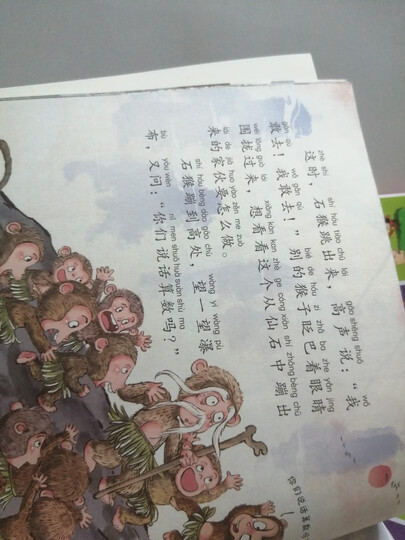 zhè shí shí hóu tiào chū lái gāo shēng shuō wǒ
这时，石猴跳出来，高声说：“我
gǎn qù wǒ gǎn qù bié de hóu zi zhǎ ba zhe yǎn jing
敢去！我敢去！”别的猴子眨巴着眼睛
wéi lǒng guò lái xiǎng kàn kan zhè ge cóng xiān shí zhōng bèng chū
围拢过来，想看看这个从仙石中蹦出
lái de jiā huo yào zěn me zuò
来的家伙要怎么做。
shí hóu bèng dào gāo chù wàng yí wàng pù
石猴蹦到高处，望一望瀑
bù yòu wèn nǐ men shuō huà suàn shù ma
布，又问：“你们说话算数吗？”
你们说话算数